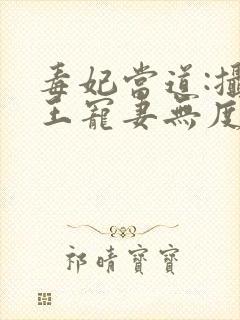 毒妃當道:攝
王寵妻無度
祁晴寶寶